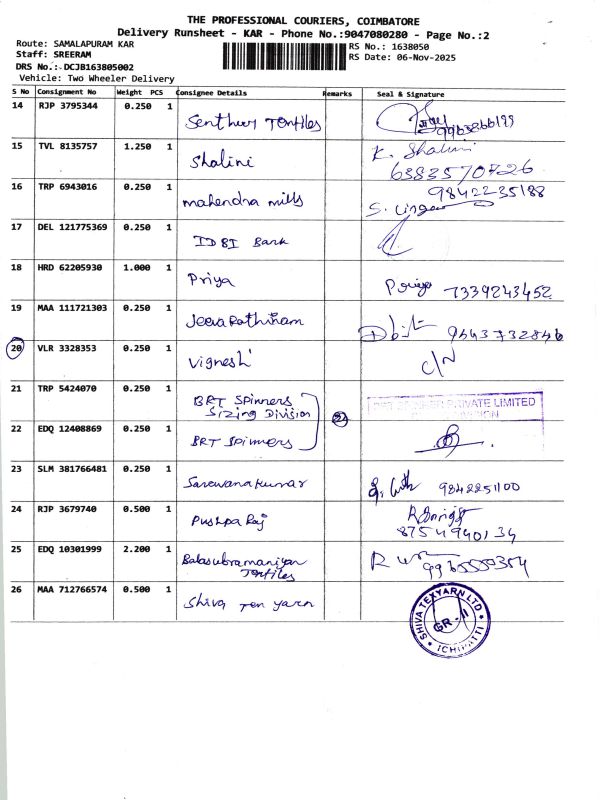 THE PROFESSIONAL COURIERS, COIMBATORE
Delivery Runsheet - KAR - Phone No.:9047080280 - Page No.:2
Route: SAMALAPURAM KAR
Staff: SREERAM
DRS No.:-DCJB163805002
Vehicle: Two Wheeler Delivery
RS No.: 1638050
RS Date: 06-Nov-2025
S No Consignment No Weight PCS Consignee Details Remarks Seal & Signature
14 RJP 3795344 0.250 1 Senthur Textiles
15 TVL 8135757 1.250 1 Shalini K. Shalini
6383570726
16 TRP 6943016 0.250 1 mahendra mills 9842235188
17 DEL 121775369 0.250 1 IDBI Bank
18 HRD 62205930 1.000 1 Priya Priya 7339243452
19 MAA 111721303 0.250 1 JeevaRathinam 9443732846
20 VLR 3328353 0.250 1 Vignesh C/N
21 TRP 5424070 0.250 1 BRT SPinners
Sizing Division
PRIVATE LIMITED
22 EDQ 12408869 0.250 1 BRT SPinners
23 SLM 381766481 0.250 1 Saravanakumar 9842251100
24 RJP 3679740 0.500 1 Pushpa Raj
8754940134
25 EDQ 10301999 2.200 1 Balasubramaniyan
Textiles
26 MAA 712766574 0.500 1 Shiva Tex yarn
SHIVA TEXYARN LTD
GR - II
ICHIPATTI